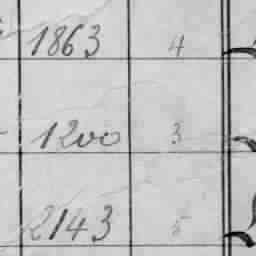 1863 4
1200 3
2143 5